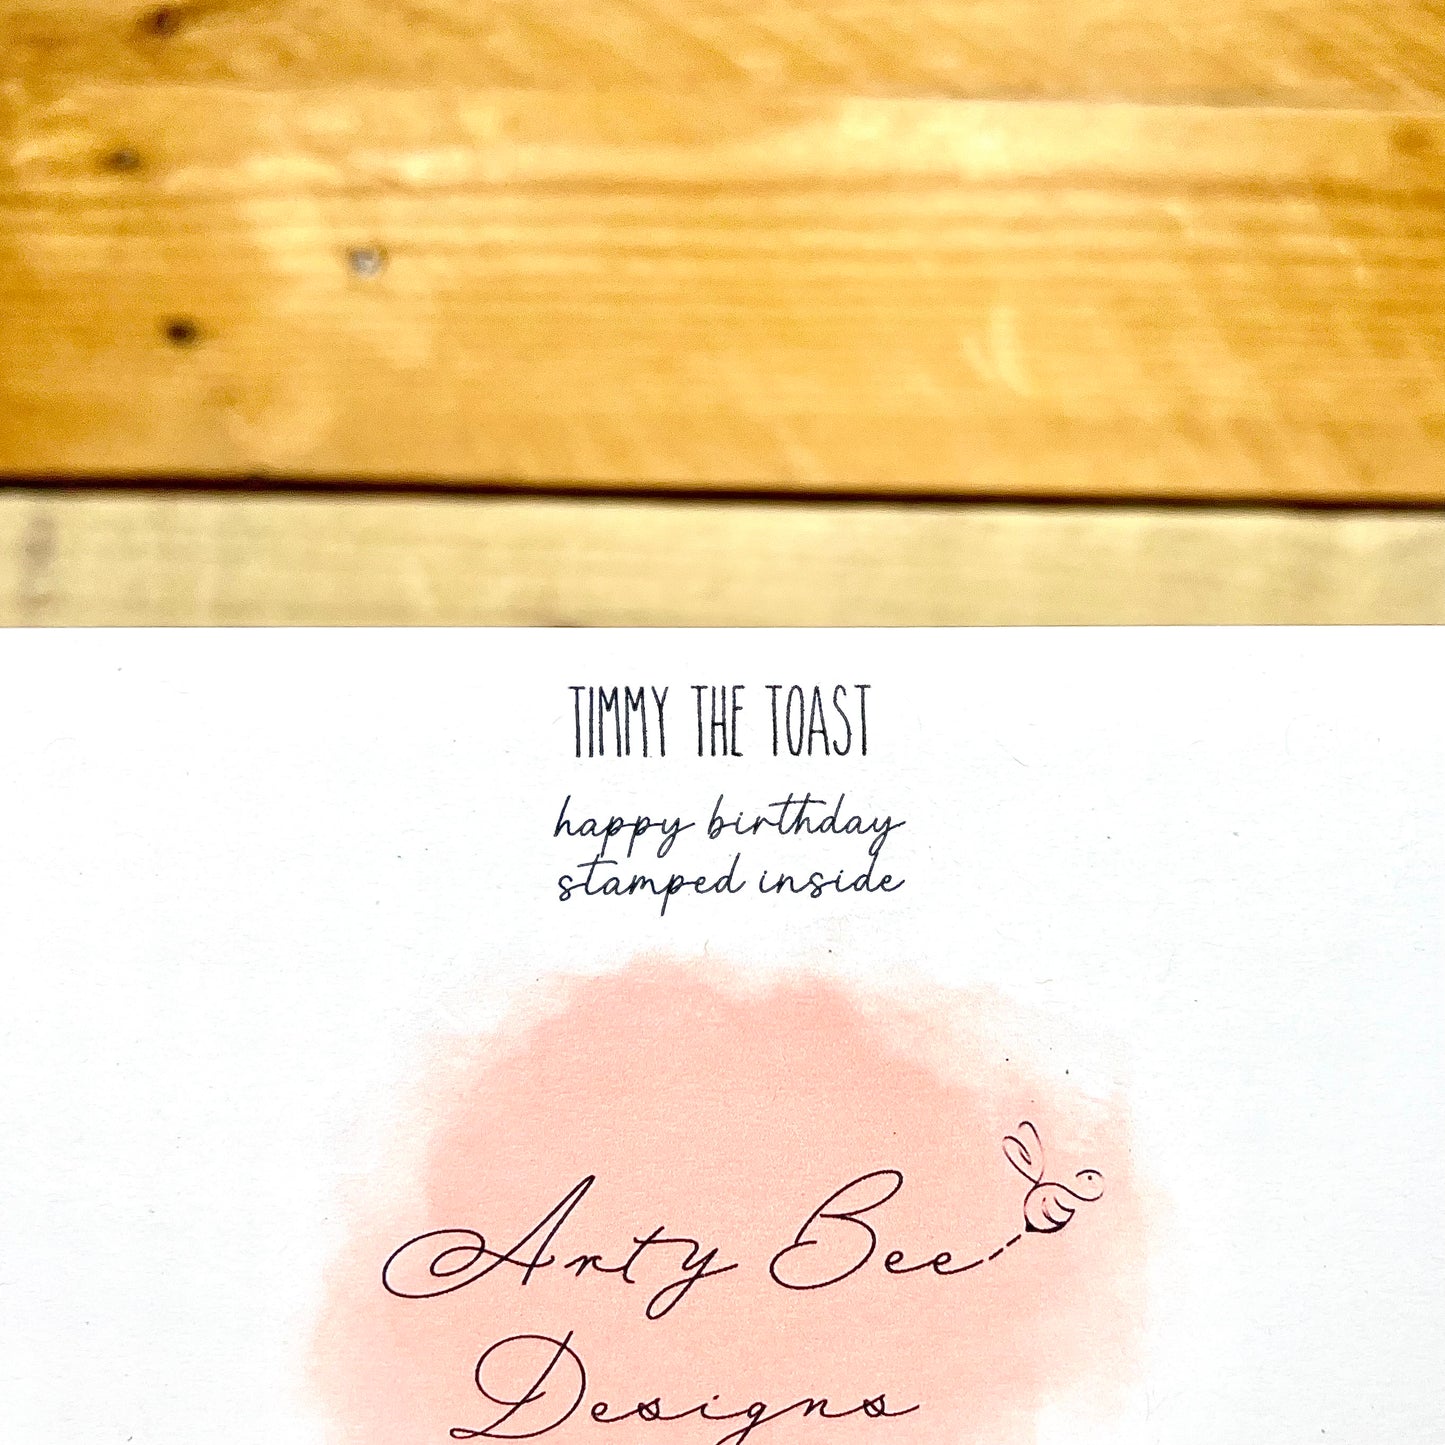 TIMMY THE TOAST
happy birthday
stamped inside
Arty Bee
Designs